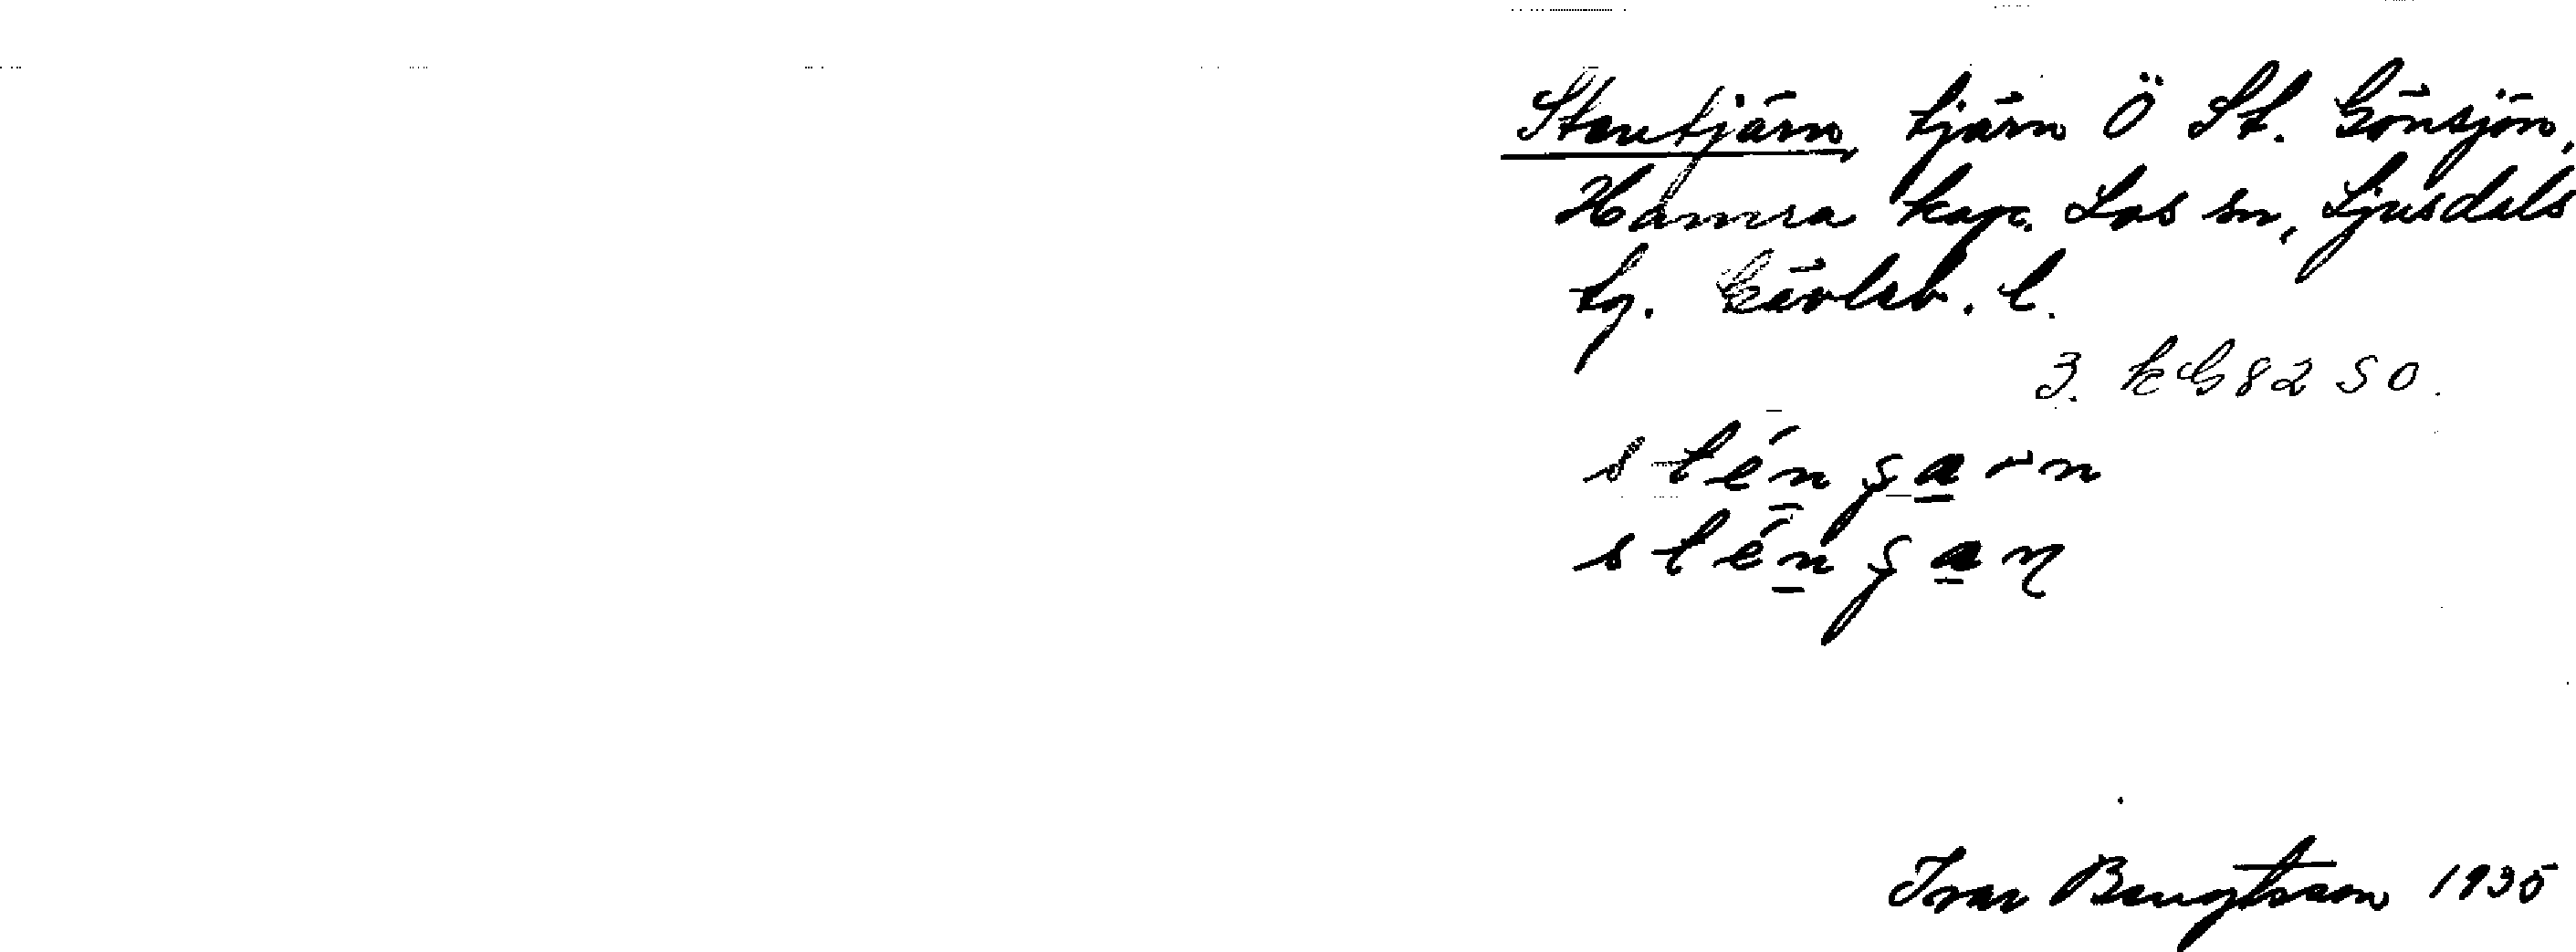 Stentjärn, tjärn Ö St. Gönsjön,
Hamra kap. Los sn, Ljusdals
tg. Gävleb. l.
3. kG 82 SO.
Ivar Bengtsson 1935